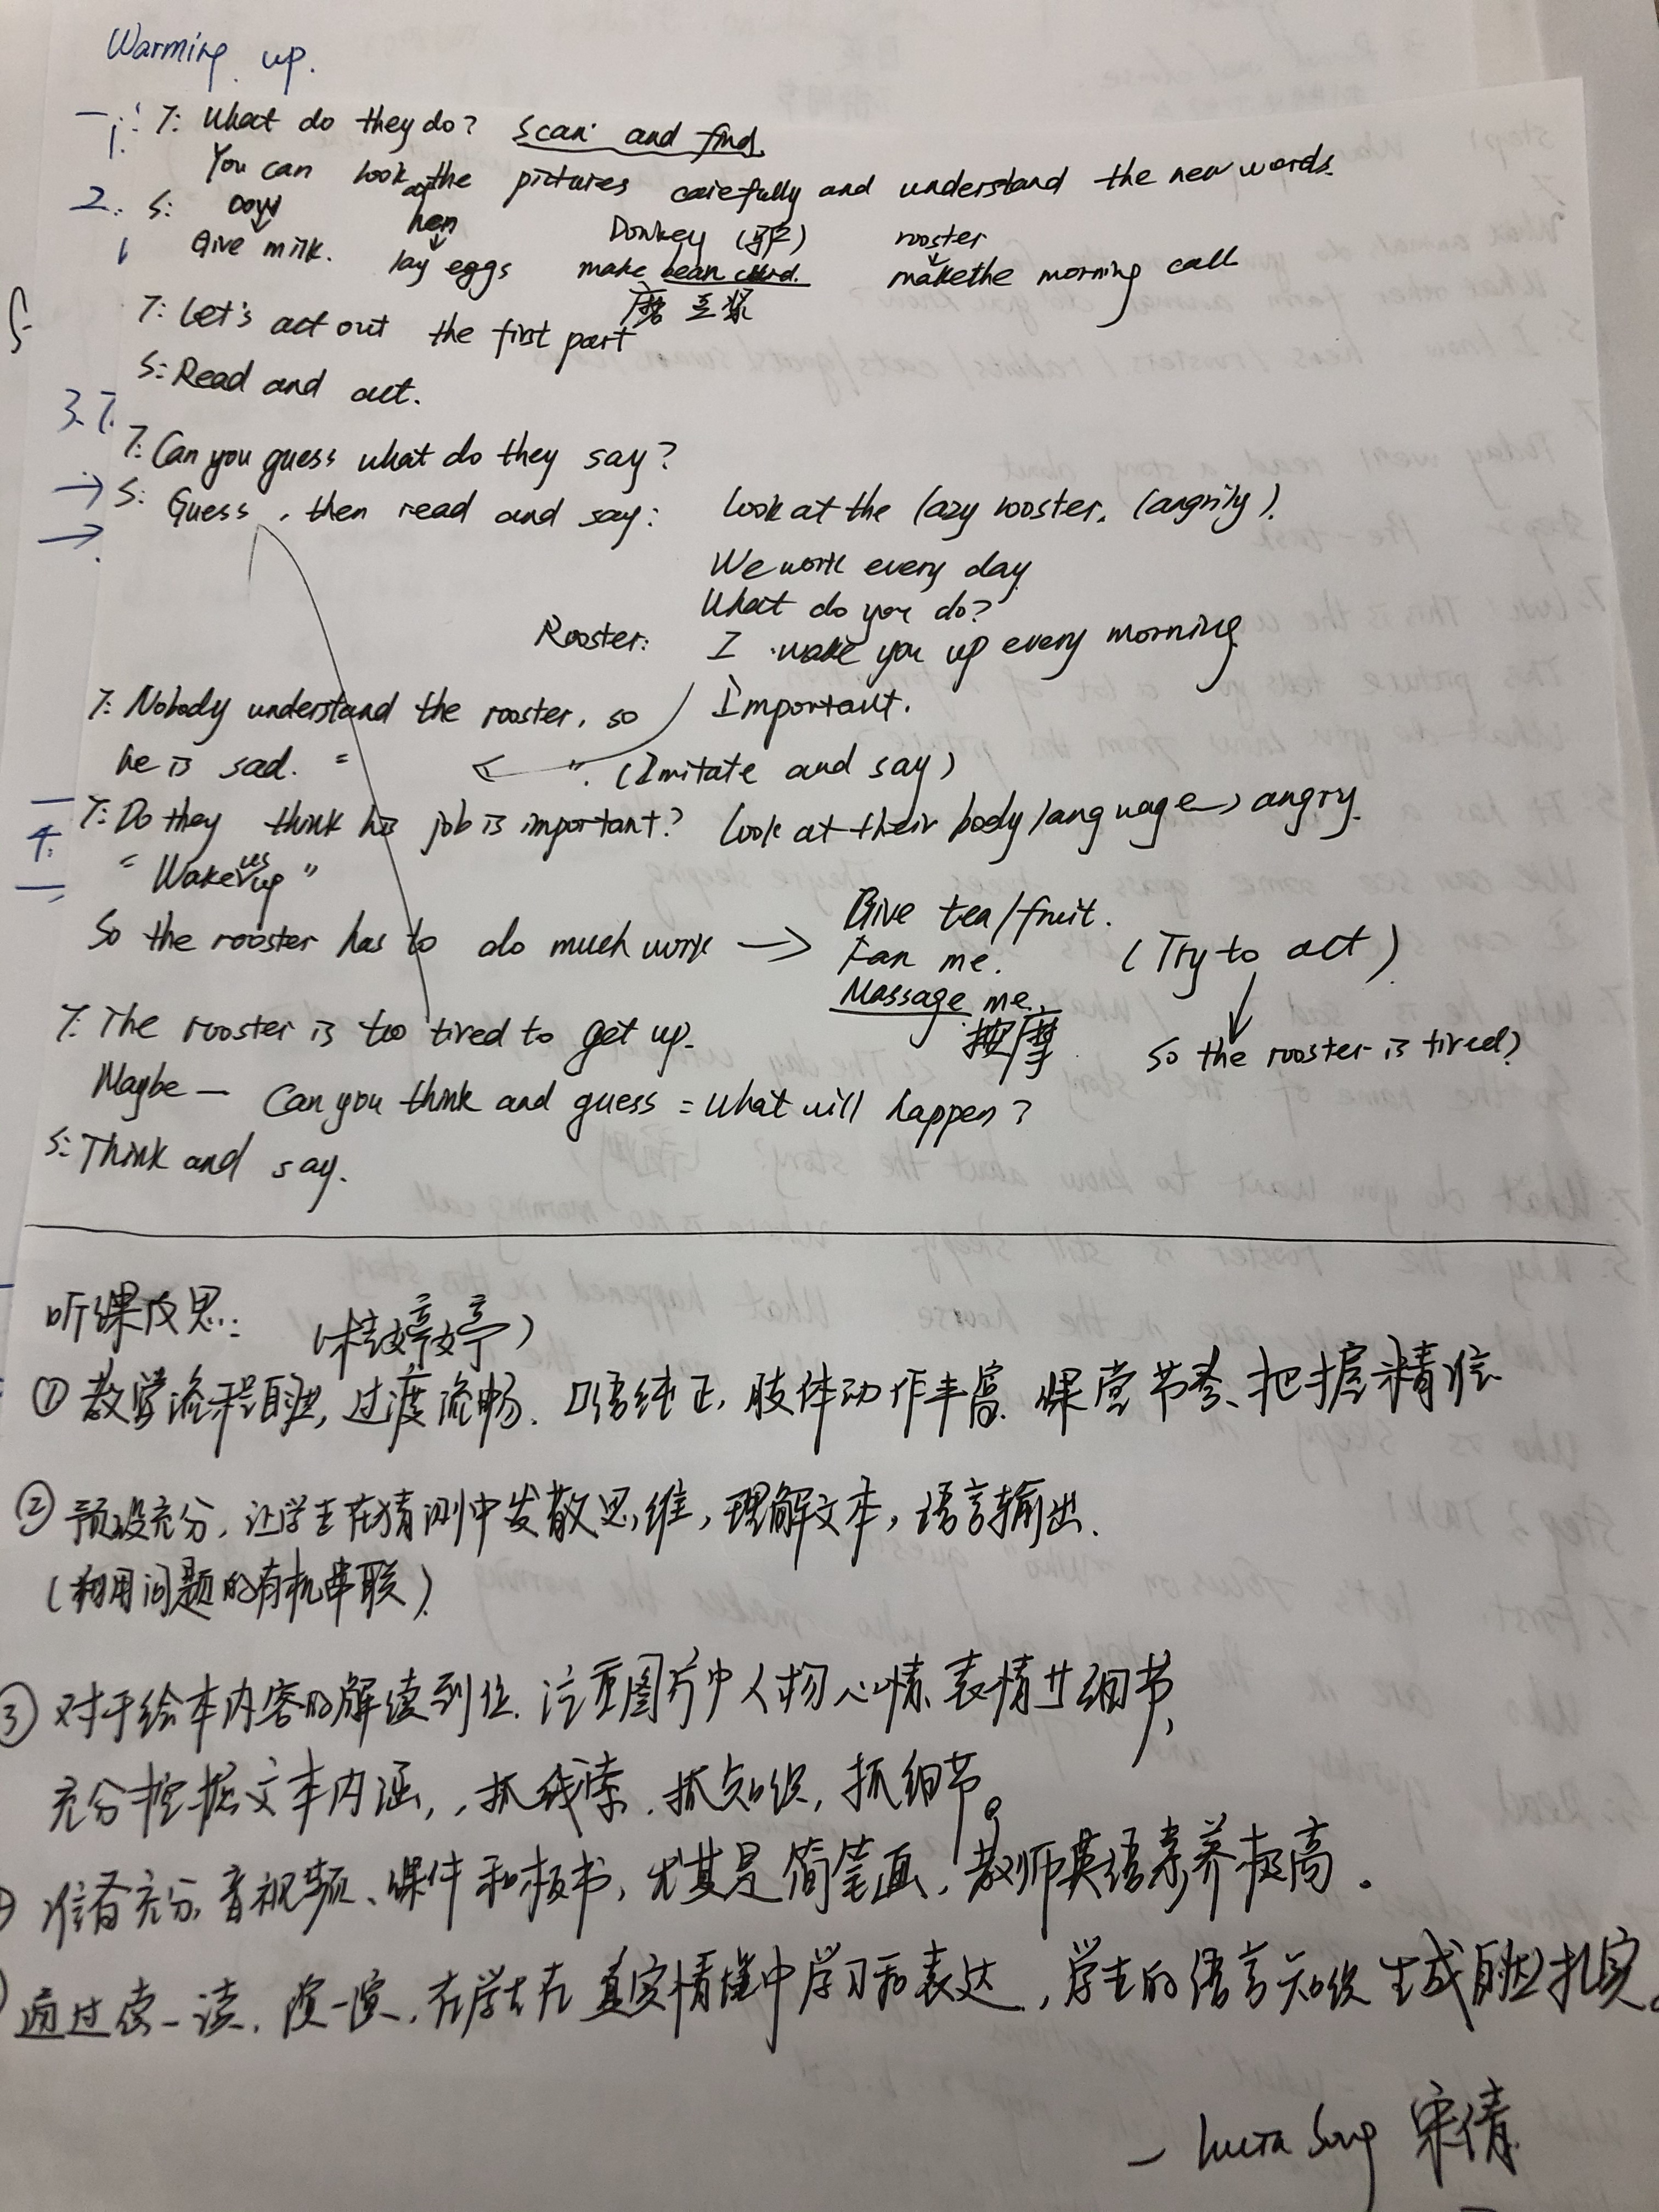 Warming up.
1. T: What do they do? Scan and find.
You can look at the pictures carefully and understand the new words.
2. S: Cow hen Donkey (驴) rooster
Give milk. lay eggs make bean curd. make the morning call
磨豆浆
T: Let's act out the first part
S: Read and act.
3. T.
T: Can you guess what do they say?
S: Guess, then read and say: Look at the lazy rooster. (angrily).
We work every day
What do you do?
Rooster: I wake you up every morning
T: Nobody understand the rooster, so Important.
he is sad. " ". (Imitate and say)
4. T: Do they think his job is important? Look at their body language → angry.
"Wake us up"
Give tea/fruit.
So the rooster has to do much work → Fan me. (Try to act)
Massage me.
按摩
T: The rooster is too tired to get up. So the rooster is tired?
Maybe — Can you think and guess = What will happen?
S: Think and say.
听课反思: (桂婷婷)
① 教学流程自然, 过度流畅、口语纯正, 肢体动作丰富. 课堂节奏、把握精准
② 预设充分, 让学生在猜测中发散思维, 理解文本, 语言输出.
(利用问题的有机串联)
③ 对于绘本内容的解读到位. 注重图片中人物心情、表情等细节,
充分挖掘文本内涵, 抓线索、抓知识, 抓细节。
准备充分, 音视频、课件和板书, 尤其是简笔画, 教师英语素养极高.
通过读一读, 演一演, 在真实情境中学习和表达, 学生的语言知识生成自然扎实。
— Song 宋倩